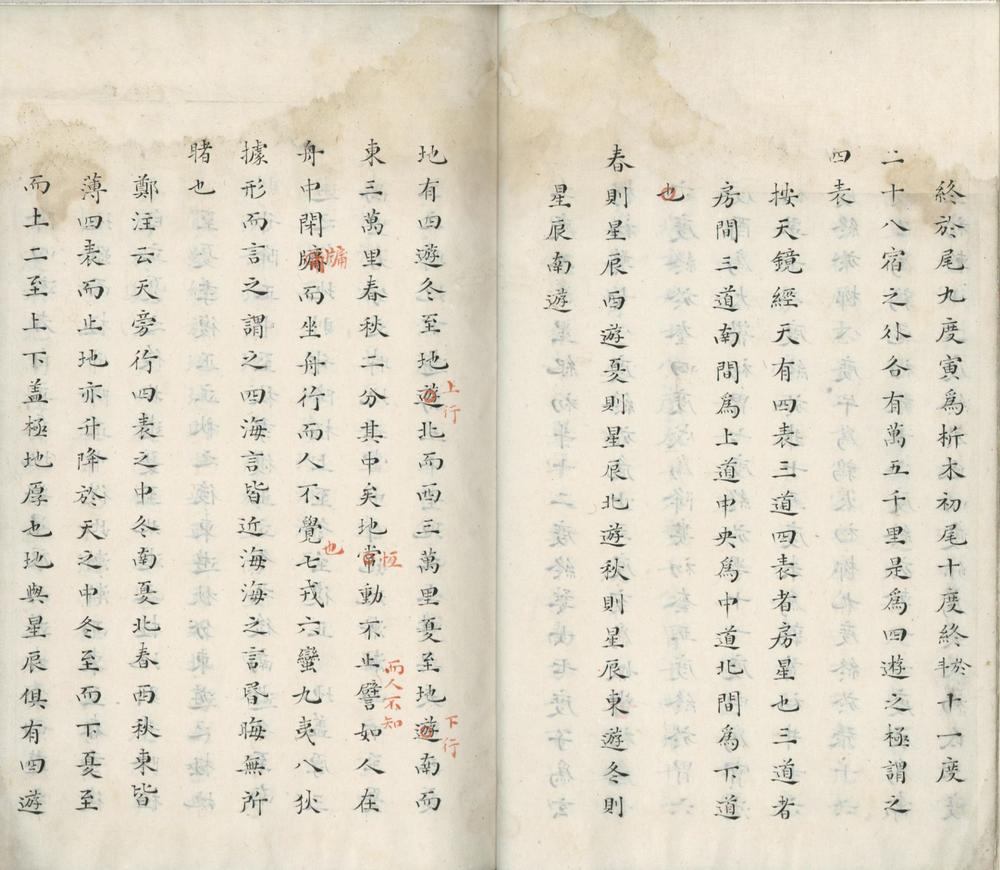 終於尾九度寅爲析木初尾十度終於斗十一度
二十八宿之外各有萬五千里是爲四遊之極謂之
四表
按天鏡經天有四表三道四表者房星也三道者
房間三道南間爲上道中央爲中道北間爲下道
也
春則星辰西遊夏則星辰北遊秋則星辰東遊冬則
星辰南遊
地有四遊冬至地遊北而西三萬里夏至地遊南而
上行
下行
東三萬里春秋二分其中矣地常動不止譬如人在
恆
而人不知
舟中閉牖而坐舟行而人不覺七戎六蠻九夷八狄
牖
也
據形而言之謂之四海言皆近海海之言昏晦無所
睹也
鄭注云天旁行四表之中冬南夏北春西秋東皆
薄四表而止地亦升降於天之中冬至而下夏至
而上二至上下盖極地厚也地與星辰俱有四遊